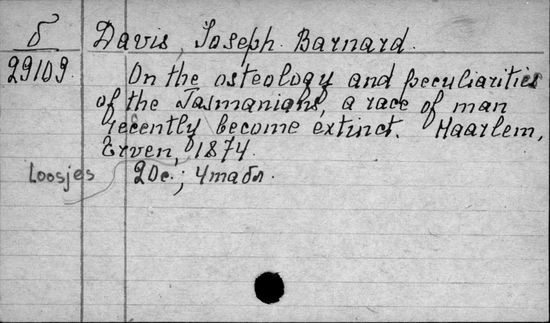 б Davis, Joseph Barnard.
29109. On the osteology and peculiarities
of the Tasmanians, a race of man
recently become extinct. Haarlem,
Erven, 1874.
Loosjes 20 с.; 4 табл.